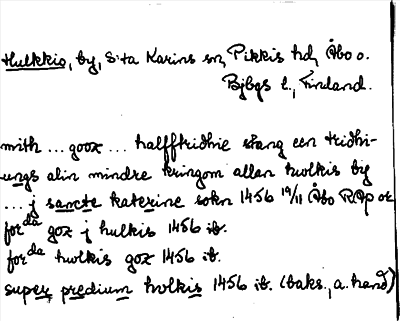 Hulkkio, by, S:ta Karins sn, Pikkis hd, Åbo o.
Bjbgs l., Finland.
mith ... goox ... halfftridhie stang een tridhi-
ungs alin mindre kringom allan hwlkis by
... j sancte katerine sokn 1456 19/11 Åbo
forda gox j hulkis 1456 ib.
forda hwlkis gox 1456 ib.
super predium hwlkis 1456 ib. (baks., a. hand)